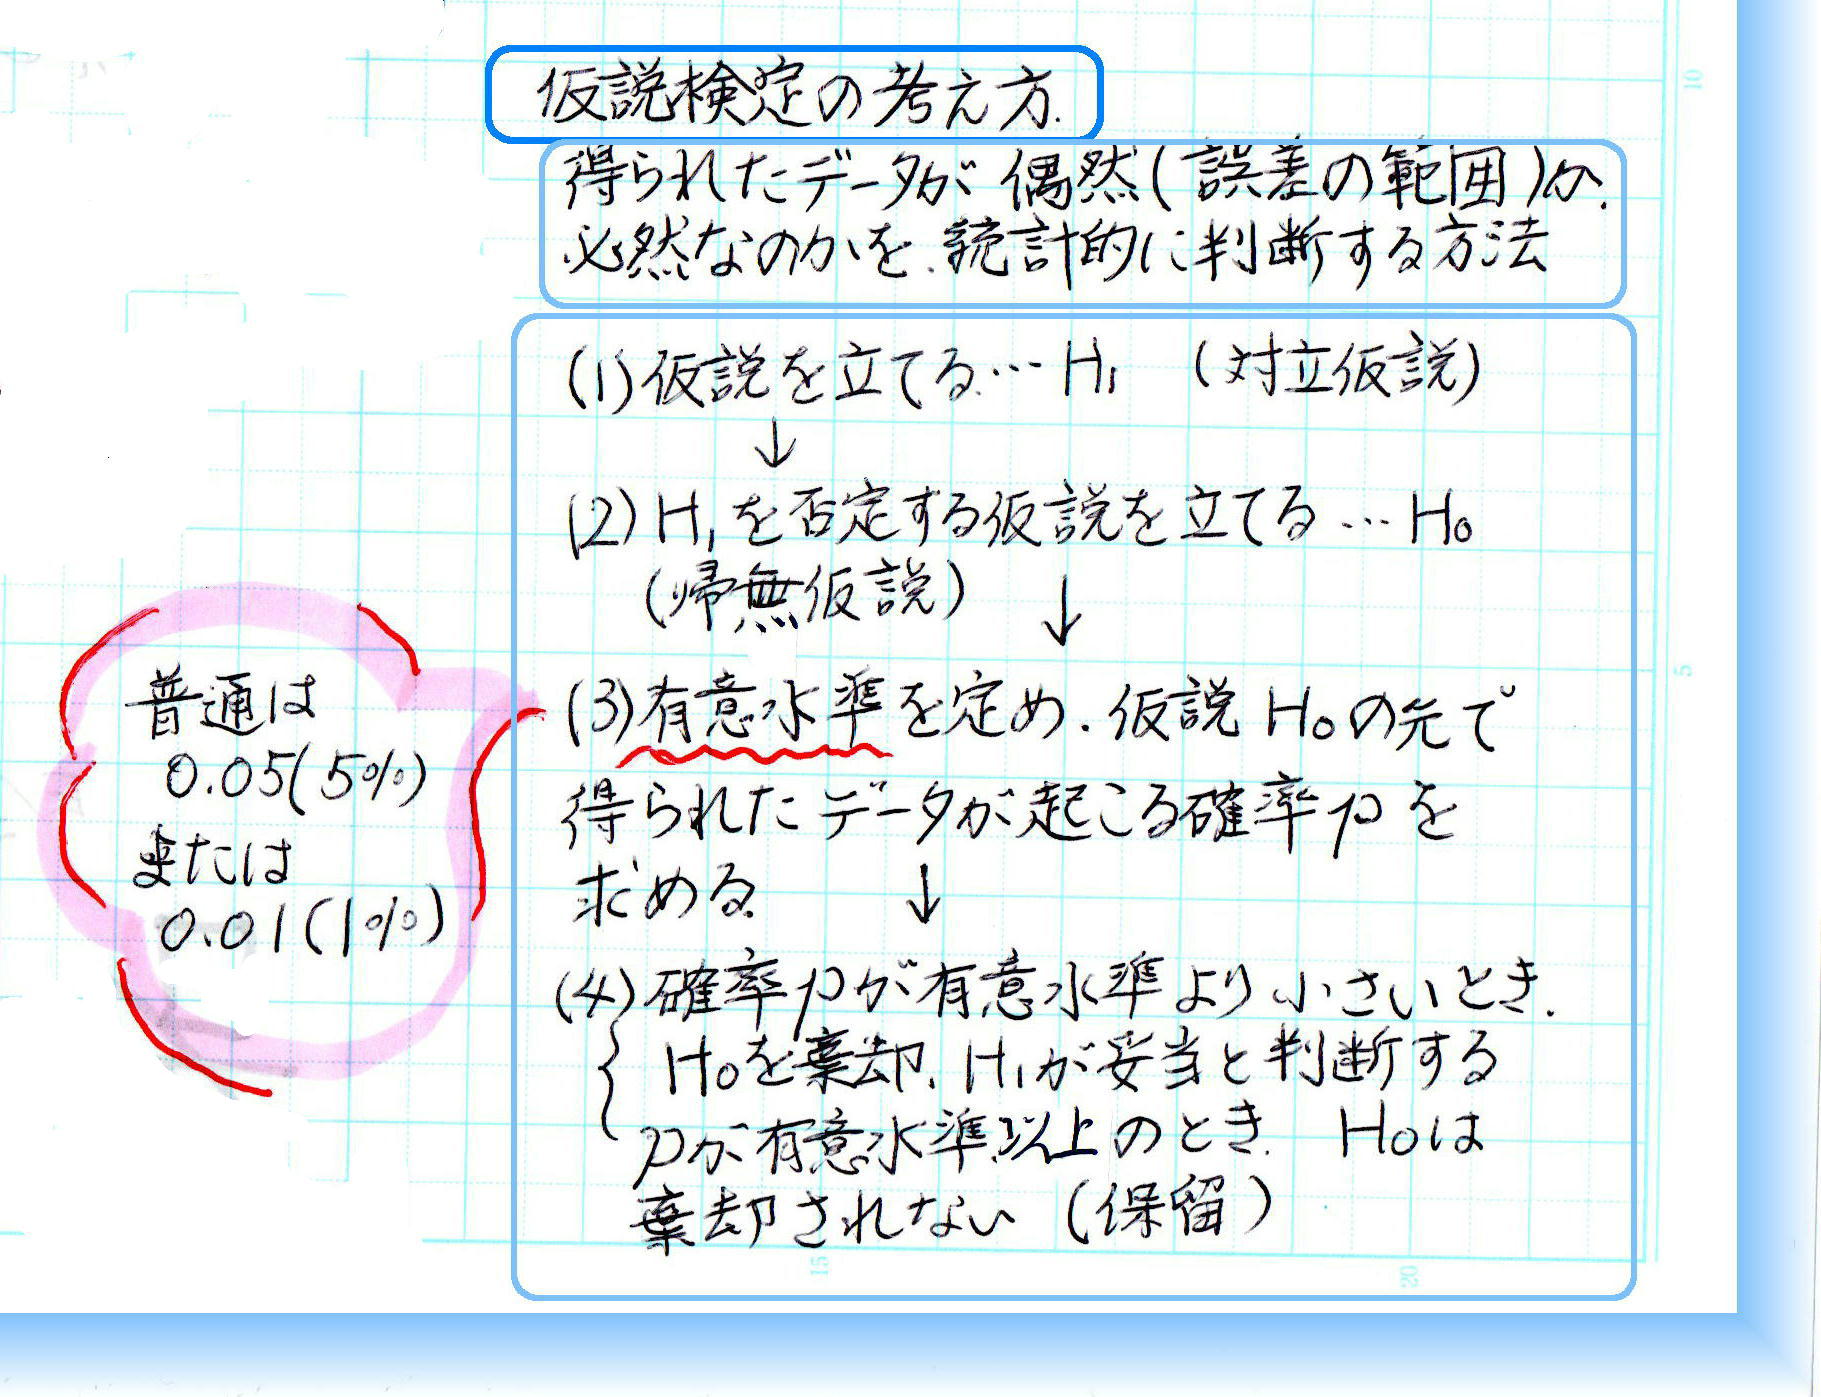 仮説検定の考え方.
得られたデータが偶然(誤差の範囲)か.
必然なのかを.統計的に判断する方法
(1)仮説を立てる…H₁ (対立仮説)
↓
(2)H₁を否定する仮説を立てる…H₀
(帰無仮説) ↓
(3)有意水準を定め.仮説H₀の元で
得られたデータが起こる確率pを
求める. ↓
(4)確率pが有意水準より小さいとき.
H₀を棄却.H₁が妥当と判断する
pが有意水準以上のとき. H₀は
棄却されない(保留)
普通は
0.05(5%)
または
0.01(1%)
10
5
15
20